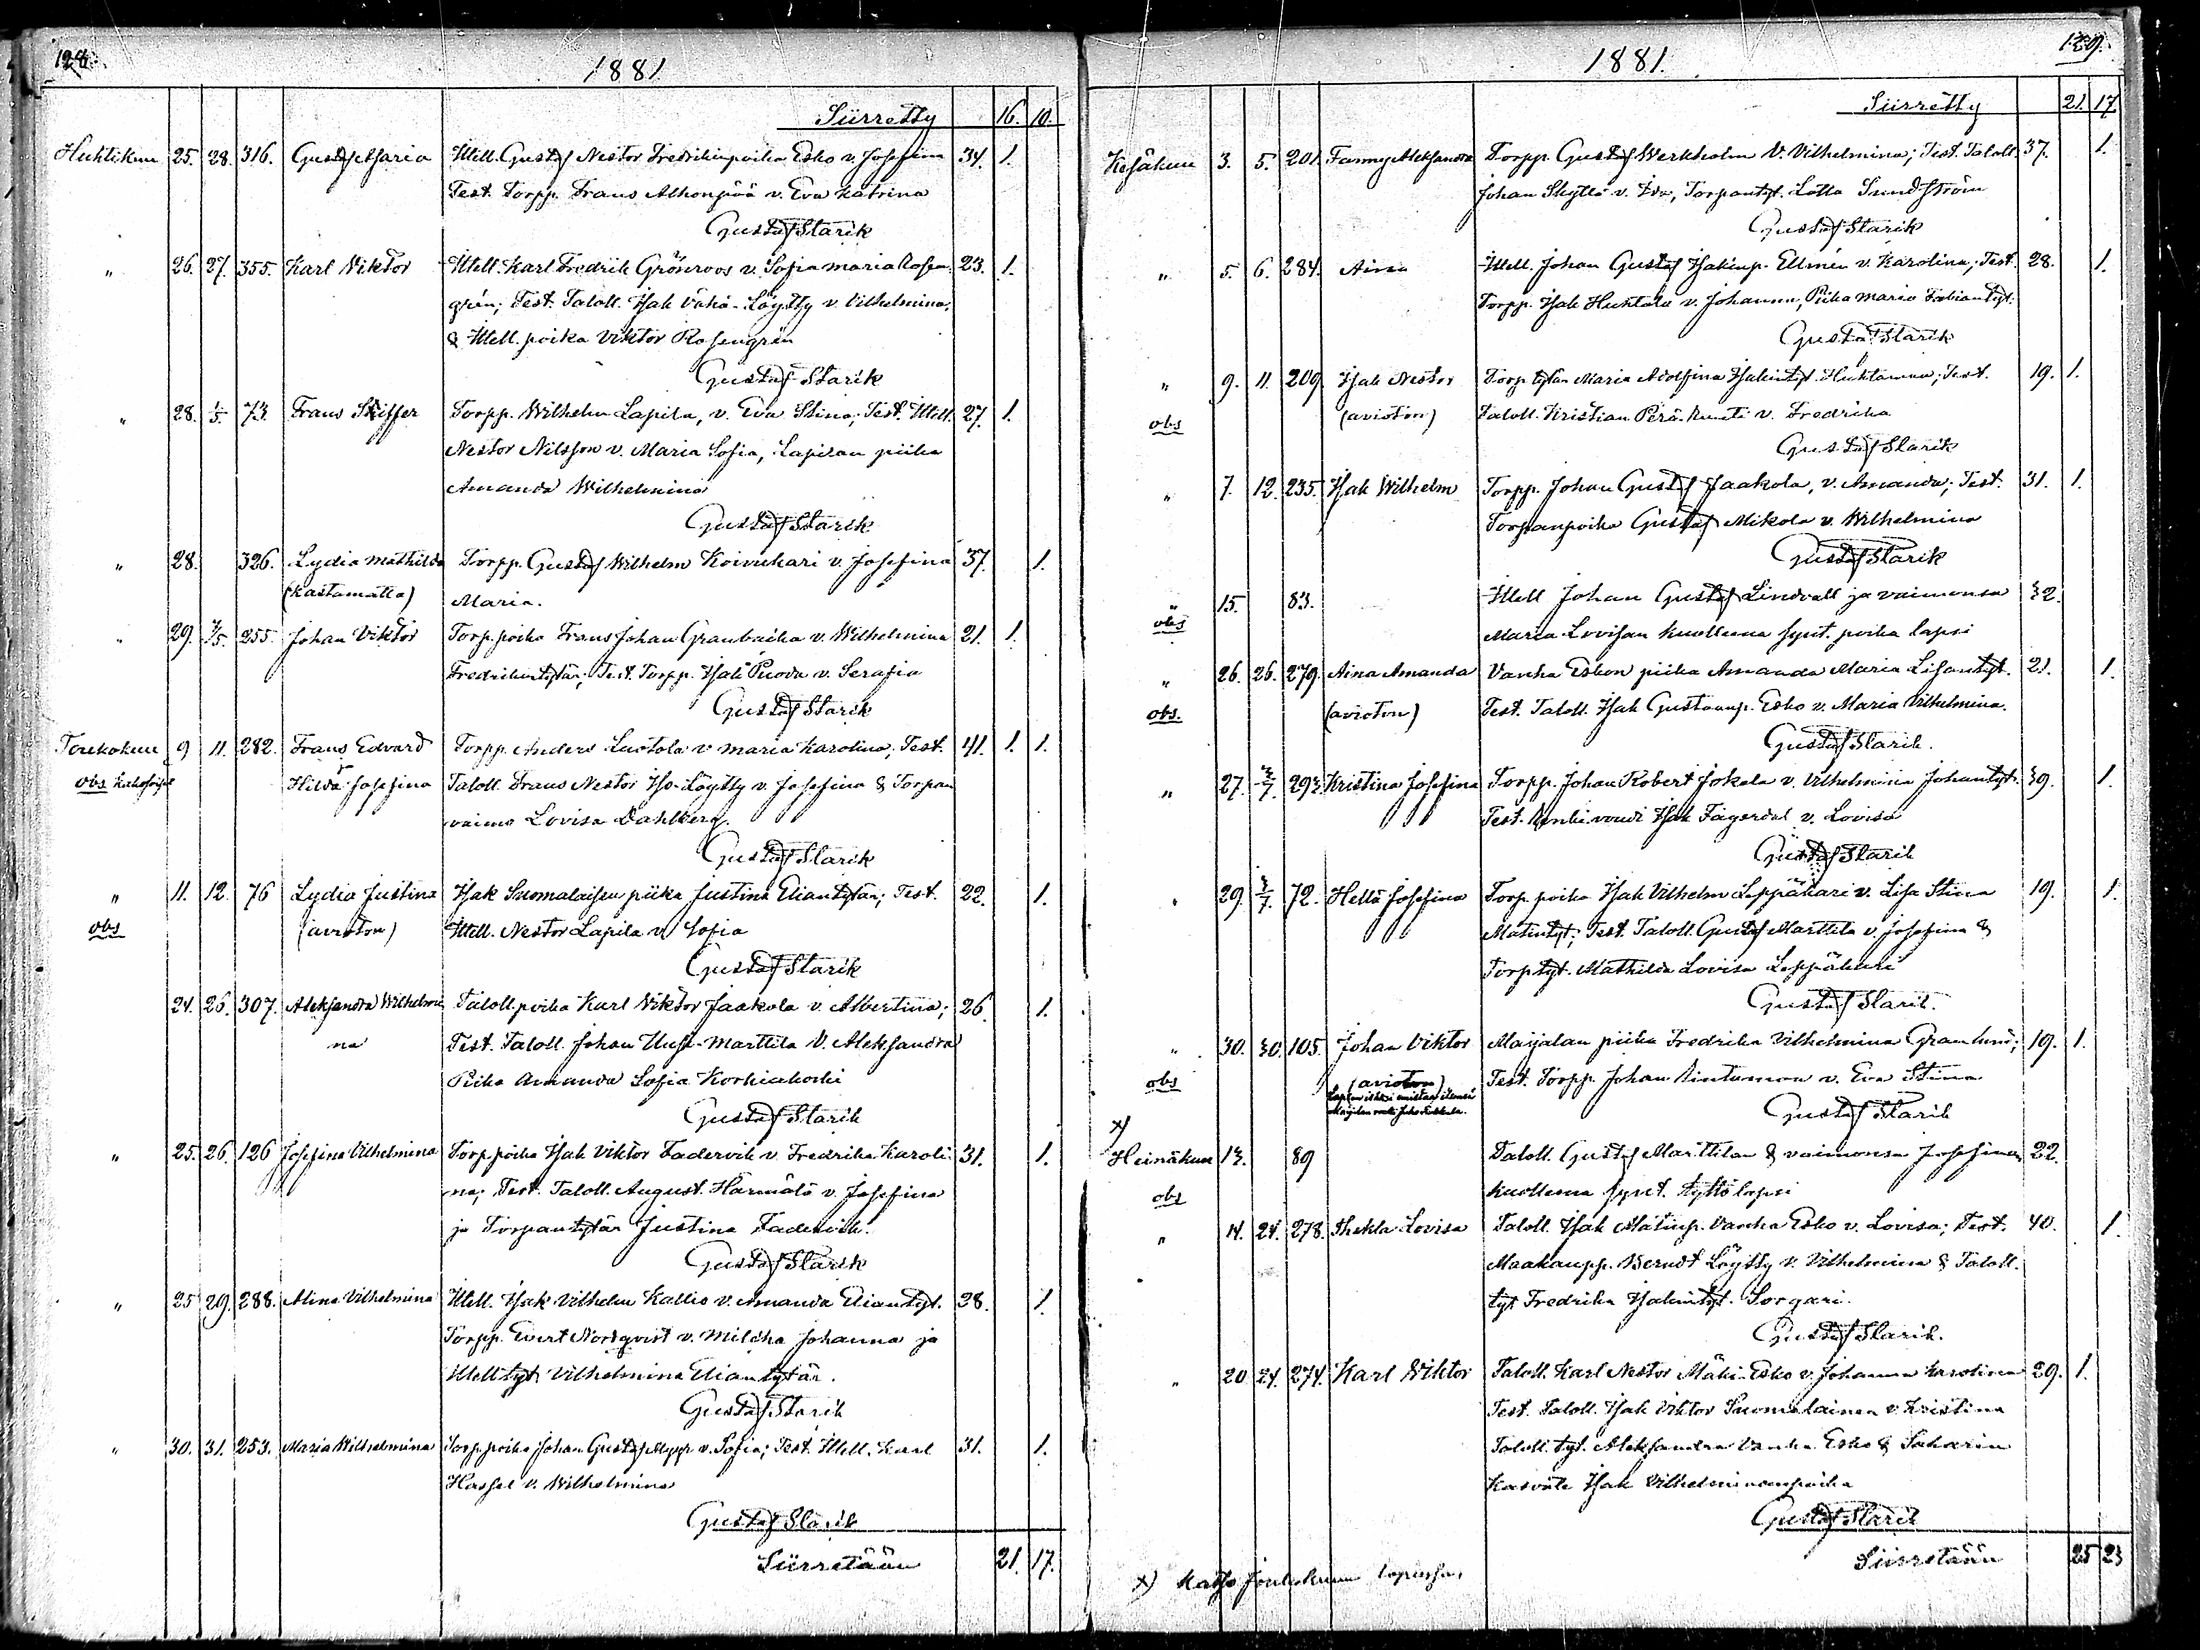 128.
1881
Siirretty 16. 10.
Huhtikuu 25. 28. 316. Gustaf Maria Itsell. Gustaf Nestor Fredrikinpoika Esko v. Josefina 34. 1.
Test. Torpp. Frans Alhonpää v. Eva Katrina
Gustaf Starik
" 26. 27. 355. Karl Viktor Itsell. Karl Fredrik Grönroos v. Sofia Maria Rosen- 23. 1.
grén; Test. Taloll. Isak Vähä-Löytty v. Vilhelmina,
& Itsell. poika Viktor Rosengrén
Gustaf Starik
" 28. 1/5 73 Frans Torpp. Wilhelm Lapila, v. Eva Stina; Test. Itsell. 27. 1.
Nestor Nilsson v. Maria Sofia, Lapilan piika
Amanda Wilhelmina
Gustaf Starik
" 28. 326. Lydia Mathilda Torpp. Gustaf Wilhelm Koivukari v. Josefina 37. 1.
(kastamatta) Maria.
" 29. 255. Johan Viktor Torp. poika Frans Johan Granbacka v. Wilhelmina 21. 1.
Fredrikintytär; Test. Torpp. Isak v. Serafia
Gustaf Starik
Toukokuu 9 11. 282. Frans Edvard Torpp. Anders Luotola v. Maria Karolina; Test. 41. 1. 1.
obs kaksoiset Hilda Josefina Taloll. Frans Nestor Iso-Löytty v. Josefina & Torpan
vaimo Lovisa Dahlberg.
Gustaf Starik
" 11. 12. 76 Lydia Justina Isak Suomalaisen piika Justina Eliantytär; Test. 22. 1.
obs (avioton) Itsell. Nestor Lapila v. Sofia
Gustaf Starik
24. 26. 307. Aleksandra Wilhelmi- Taloll. poika Karl Viktor Jaakola v. Albertina; 26. 1.
na Test. Taloll. Johan Uusi-Marttila v. Aleksandra
Piika Amanda Sofia Korkiakoski
Gustaf Starik
" 25. 26. 126 Josefina Vilhelmina Torp poika Isak Viktor Fadervik v. Fredrika Karoli- 31. 1.
na; Test. Taloll. August Härmälä v. Josefina
ja Torpantytär Justina Fadervik.
Gustaf Starik
" 25 29. 288. Alina Vilhelmina Itsell. Isak Vilhelm Kallio v. Amanda Eliantyt. 28. 1.
Torpp. Evert Nordqvist v. Milcka Johanna ja
Itsell tyt. Vilhelmina Eliantytär.
Gustaf Starik
" 30. 31. 253. Maria Wilhelmina Torp poika Johan Gustaf v. Sofia; Test. Itsell. Karl 31. 1.
Hassel v. Wilhelmina
Gustaf Starik
Siirretään 21. 17.
129.
1881.
Siirretty 21. 17.
Kesäkuu 3. 5. 201. Fanny Aleksandra Torpp. Gustaf Werkholm v. Vilhelmina; Test. Taloll. 37. 1.
Johan Skyttä v. Ida, Torpantyt. Lotta Sundström
Gustaf Starik
" 5. 6. 284. Aina Itsell. Johan Gustaf Isakinp. Ellmén v. Karolina; Test. 28. 1.
Torpp. Isak Huhtala v. Johanna, Piika Maria Fabiantyt.
Gustaf Starik
" 9. 11. 209. Isak Nestor Torp tytär Maria Adolfina Isakintyt. Huhtamaa; Test. 19. 1.
obs (avioton) Taloll. Kristian Perä-Kunsti v. Fredrika
Gustaf Starik
" 7. 12. 235. Isak Wilhelm Torpp. Johan Gustaf Jaakola, v. Amanda; Test. 31. 1.
Torpanpoika Gustaf Mikola v. Wilhelmina
Gustaf Starik
" 15. 83. Itsell Johan Gustaf Lindvall ja vaimonsa 32.
obs Maria Lovisan kuolleena synt. poika lapsi
" 26. 26. 279. Aina Amanda Vanha Eskon piika Amanda Maria Lisantyt. 21. 1.
obs. (avioton) Test. Taloll. Isak Gustavinp. Esko v. Maria Vilhelmina.
Gustaf Starik.
" 27. 3/7. 293. Kristina Josefina Torpp. Johan Robert Jokela v. Vilhelmina Johantyt. 39. 1.
Test. vouti Isak Fagerdal v. Lovisa
Gustaf Starik
" 29. 3/7. 72. Hellä Josefina Torp. poika Isak Vilhelm Leppäkari v. Lisa Stina 19. 1.
Matintyt.; Test. Taloll. Gustaf Marttila v. Josefina &
Torptyt. Mathilda Lovisa Leppäkari
Gustaf Starik.
" 30. 30. 105. Johan Viktor Maijalan piika Fredrika Vilhelmina Granlund; 19. 1.
obs (avioton) Test. Torpp. Johan Rintamaa v. Eva Stina
Gustaf Starik
x)
Heinäkuu 13. 89 Taloll. Gustaf Marttilan & vaimonsa Josefinan 22.
obs kuolleena synt. tyttö lapsi
" 14. 24. 278. Thekla Lovisa Taloll. Isak Matinp. Vanha Esko v. Lovisa; Test. 40. 1.
Maakaupp. Berndt Löytty v. Vilhelmina & Taloll.
tyt Fredrika Isakintyt. Sorgari.
Gustaf Starik.
" 20 24. 274. Karl Viktor Taloll. Karl Nestor Mäki-Esko v. Johanna Karolina 29. 1.
Test. Taloll. Isak Viktor Suomalainen v. Kristina
Taloll. tyt. Aleksandra Vanha Esko & Saharin
kasvate Isak Vilhelminanpoika
Gustaf Starik
Siirretään 25 23
x) Katso Joulukuun lopussa.